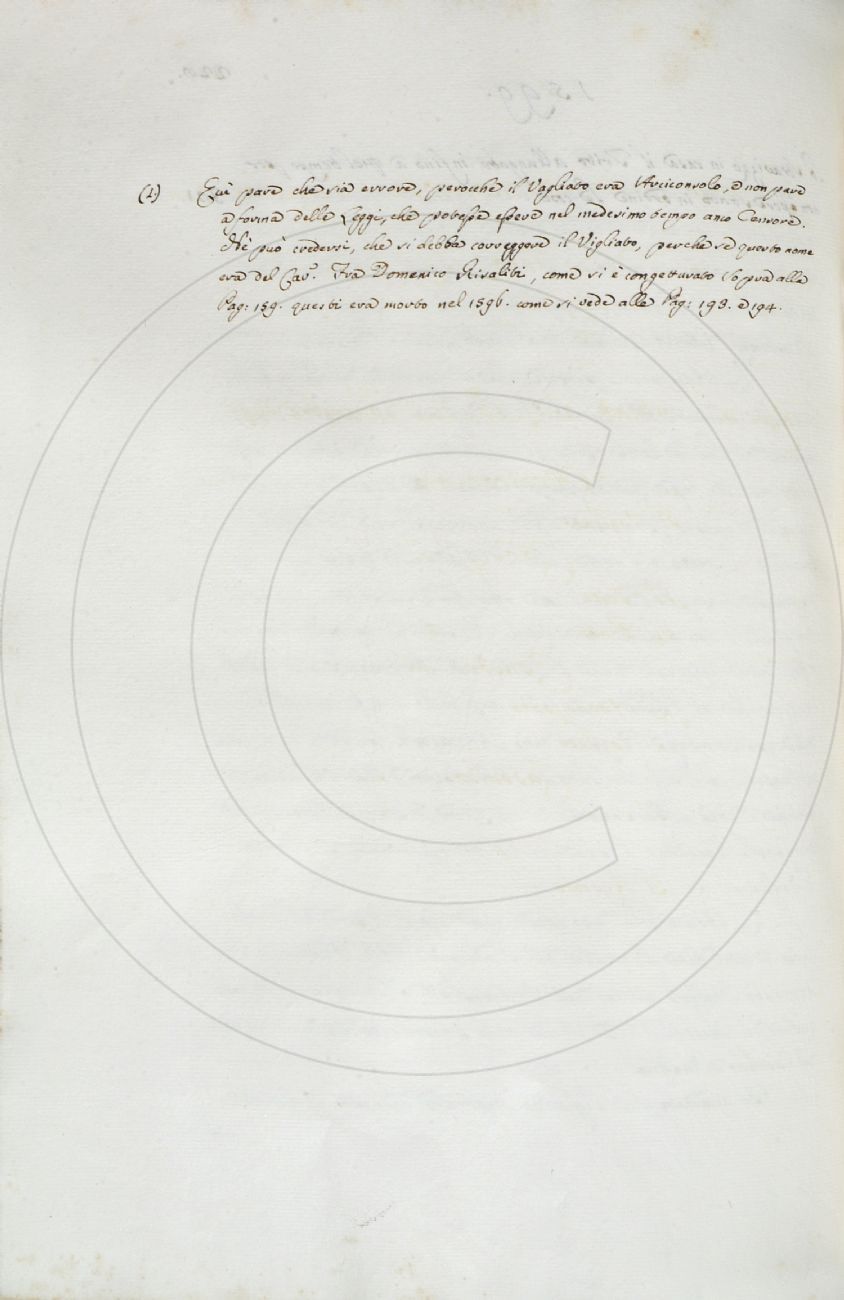 (1) Quì pare che sia errore, perocchè il Vagliato era Arciconsolo, e non pare
a forma delle Leggi, che potesse essere nel medesimo tempo anco Censore.
Nè può credersi, che si debba correggere il Vigliato, perche se questo nome
era del Cav.r Fra Domenico Risaliti, come si è congetturato sopra alla
Pag: 159. questi era morto nel 1596. come si vede alle Pag: 193. e 194.